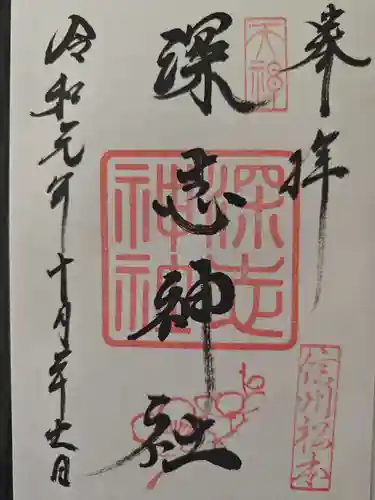 奉拝
天神
信州松本
深志神社
深志神社
令和元年十月二十六日